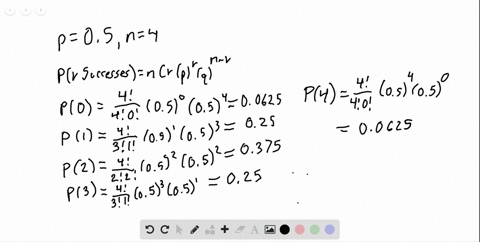 p=0.5, n=4
P(r Successes)=nCr(p)^r(q)^n-r
P(0)=4!/4!0! (0.5)^0(0.5)^4=0.0625
P(1)=4!/3!1! (0.5)^1(0.5)^3=0.25
P(2)=4!/2!2! (0.5)^2(0.5)^2=0.375
P(3)=4!/3!1! (0.5)^3(0.5)^1=0.25
P(4)=4!/4!0! (0.5)^4(0.5)^0
=0.0625